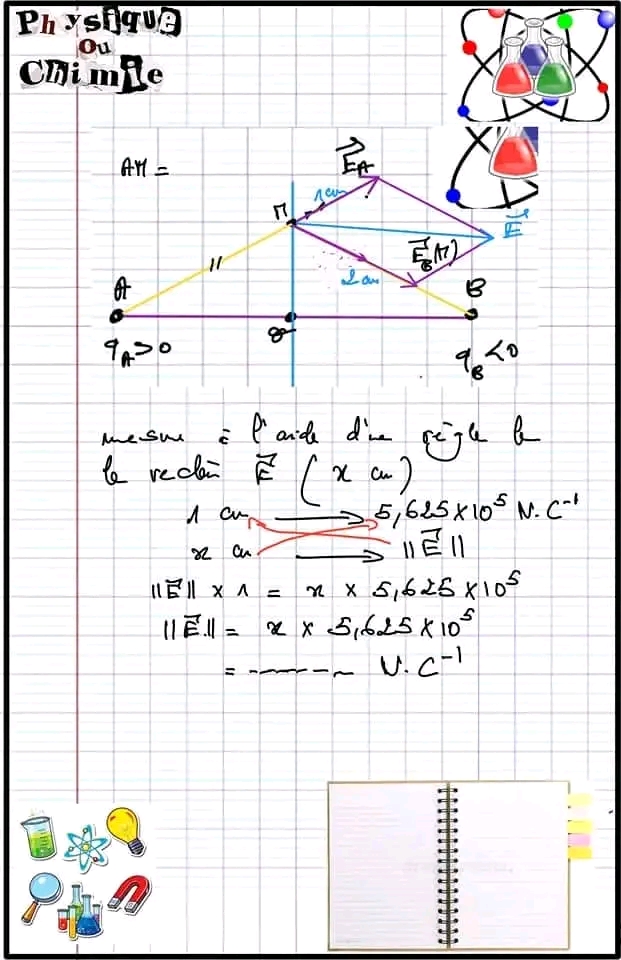 Physique
Ou
Chimie
AM =
E⃗A
1cm
M
E⃗
E⃗B(M)
2 cm
A
B
qA>0
qB<0
mesure à l'aide d'une règle le
le vecteur E⃗ ( x cm)
1 cm → 5,625×10⁵ N.C⁻¹
x cm → ||E⃗||
||E⃗|| × 1 = x × 5,625×10⁵
||E⃗|| = x × 5,625×10⁵
= ------- N.C⁻¹